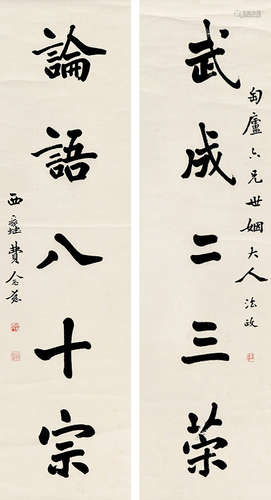 匋廬六兄世姻大人法政
武成二三策
論語八十宗
西蠡費念慈